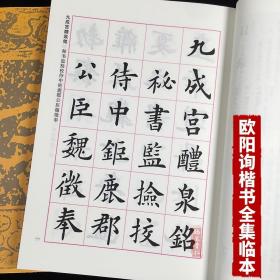 九成宮醴泉銘
祕書監撿挍
侍中鉅鹿郡
公臣魏徵奉
九成宫醴泉铭 秘书监检校侍中钜鹿郡公臣魏徵奉
欧阳询楷书全集临本